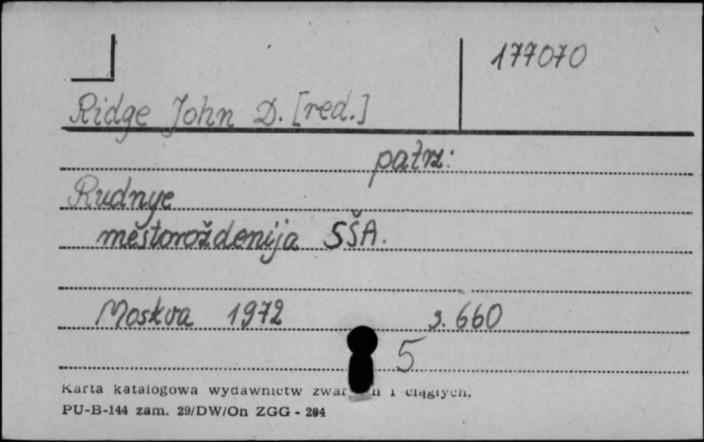 177070
Ridge John D. [red.]
patrz:
Rudnye
mestoroždenija SŠA.
Moskva 1972 s. 660
5
Karta katalogowa wydawnictw i ciągłych.
PU-B-144 zam. 29/DW/On ZGG - 204